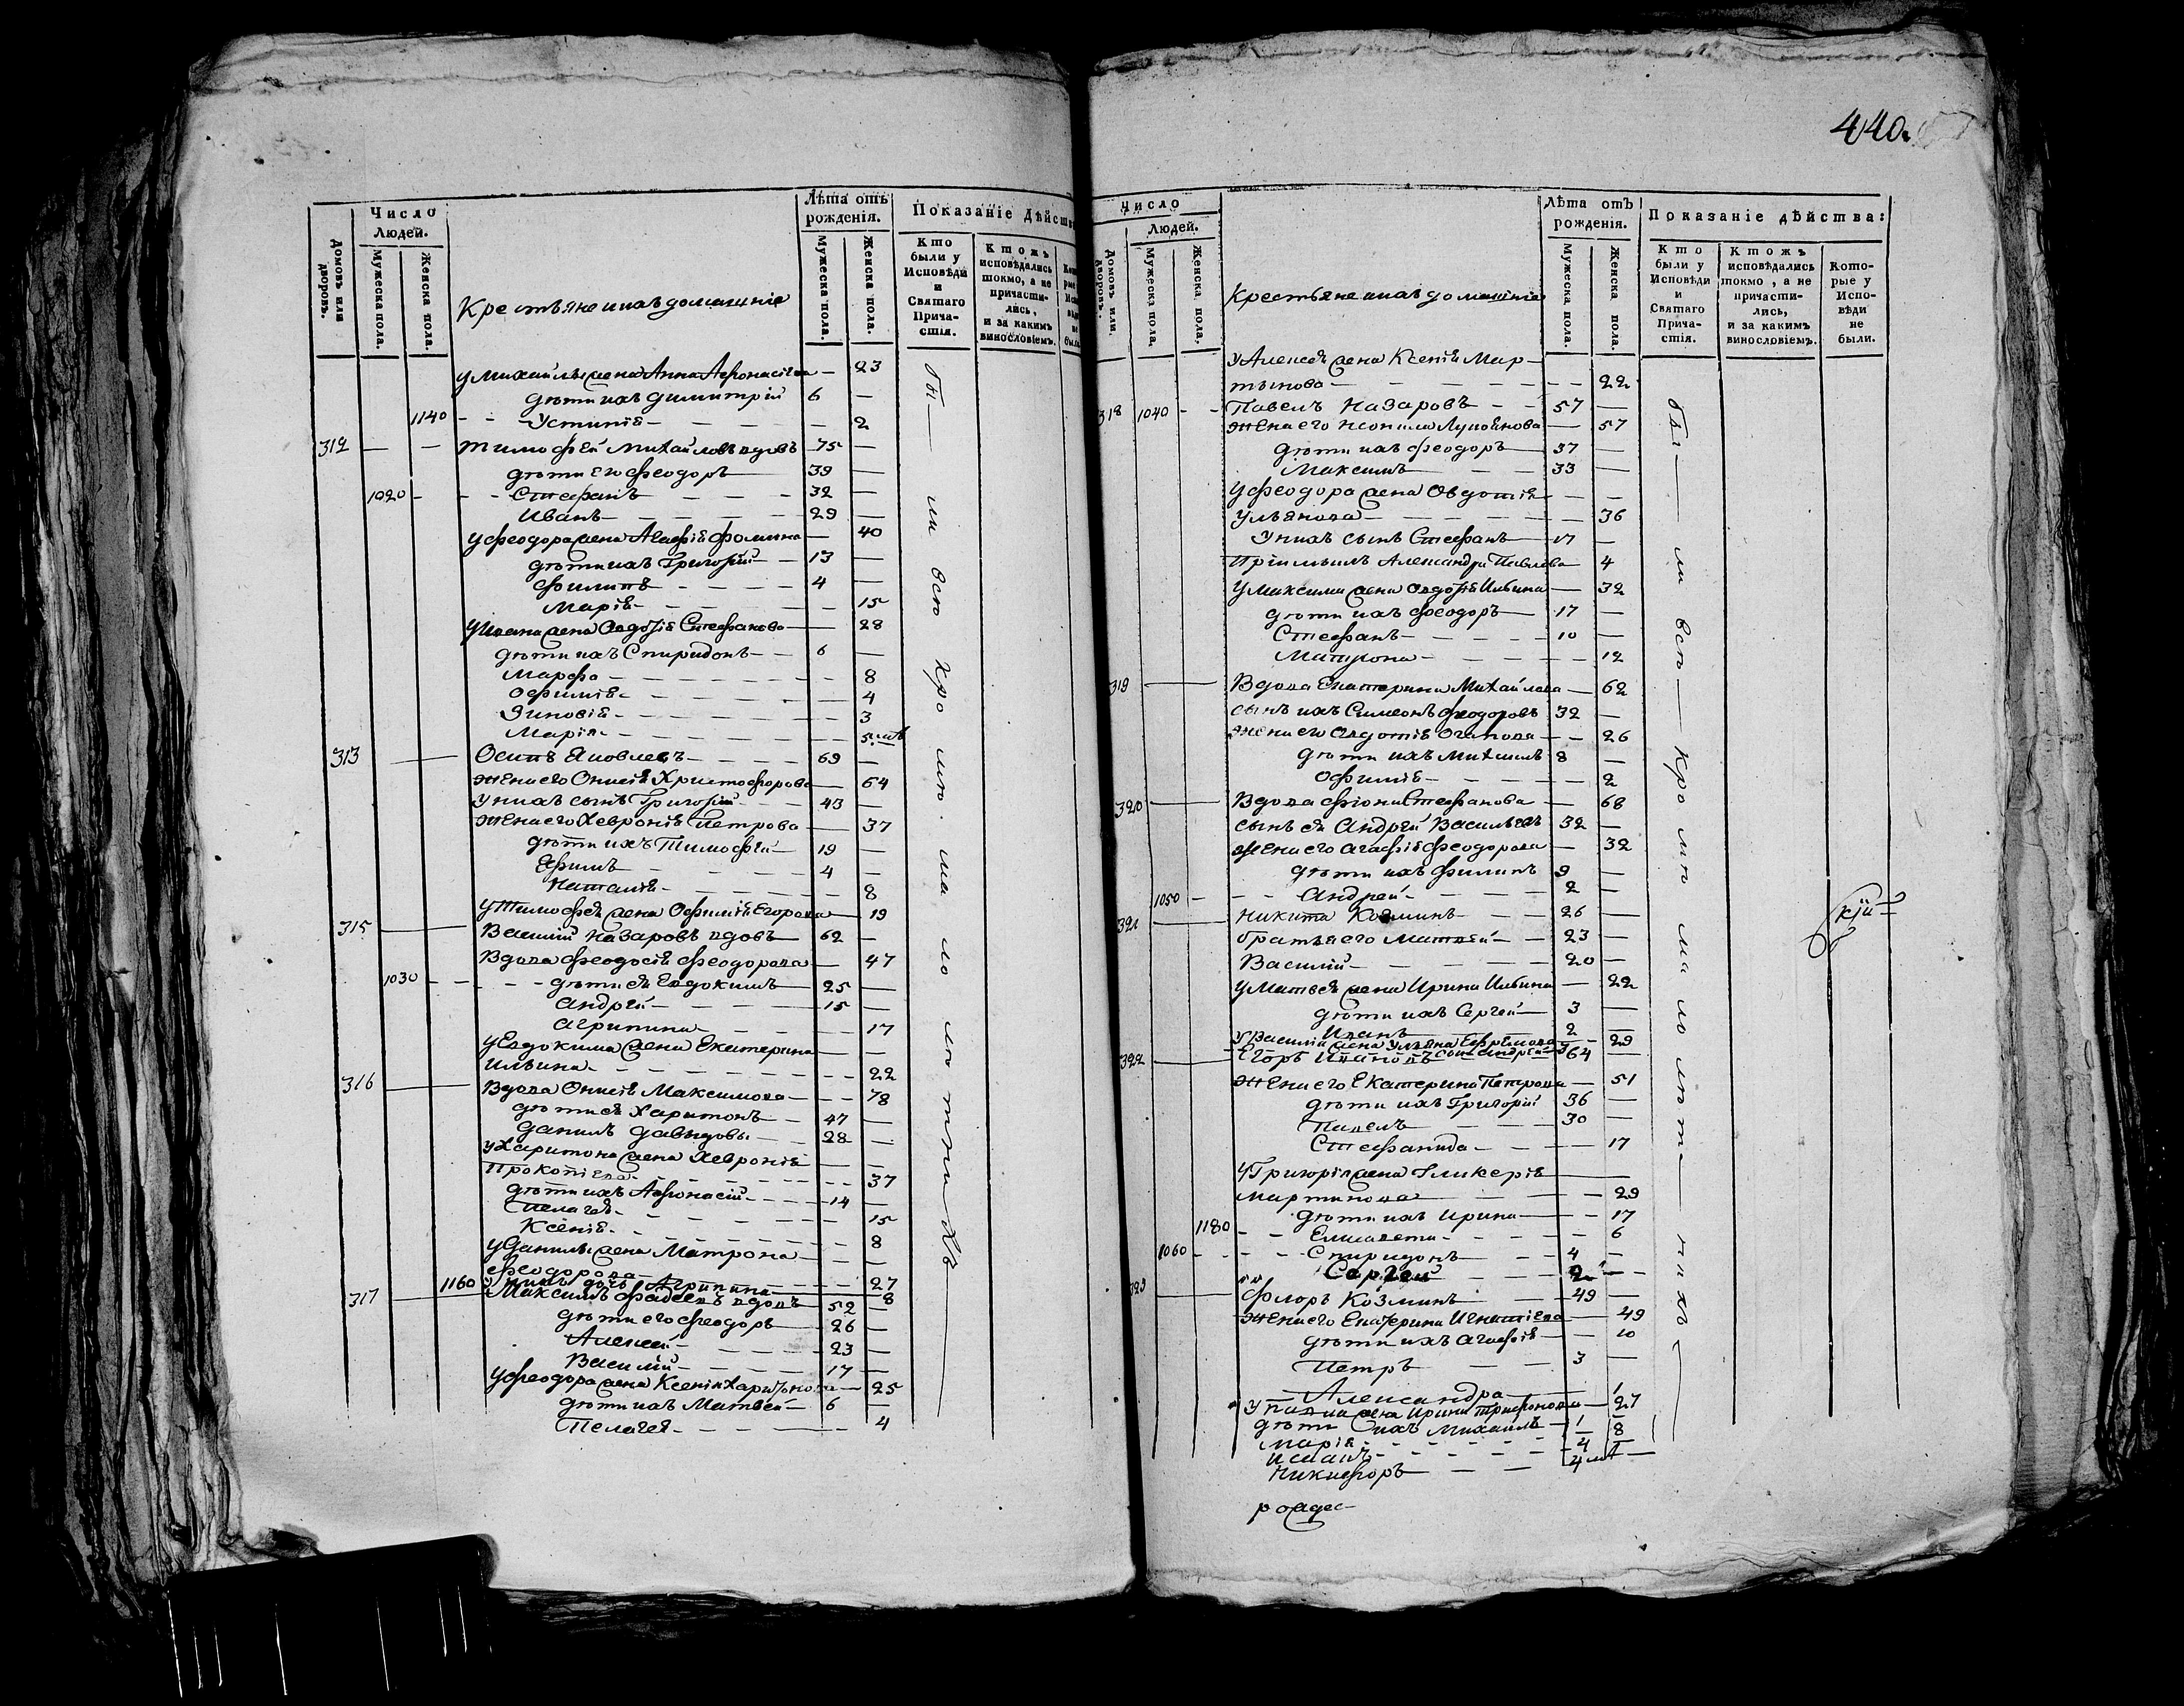 440.
Число
Людей.
Лѣта отъ
рожденія.
Показаніе Дѣйст
Домовъ или дворовъ.
Мужеска пола.
Женска пола.
Крестьяне и ихъ домашніе
Мужеска пола.
Женска пола.
Кто были у Исповѣди и Святаго Причастія.
Ктожъ исповѣдались токмо, а не причастились, и за какимъ винословіемъ.
у Михайлы жена Анна Афонасіева — 23
дѣти ихъ Димитрій 6 —
1140 - - Устинія — 2
312 — — Тимофей Михайловъ вдовъ 75 —
дѣти его Феодоръ 39 —
1020 - - - Стефанъ 32 —
Иванъ 29 —
у Феодора жена Агафія Фомина — 40
дѣти ихъ Григорій 13 —
Филипъ 4 —
Марія — 15
у Ивана жена Авдотія Стефанова — 28
дѣти ихъ Спиридонъ 6 —
Марфа — 8
Офимія — 4
Зиновія — 3
Марія — 5
313 — Осипъ Яковлевъ 69 —
жена его Онисія Христофорова — 64
у нихъ сынъ Григорій 43 —
жена его Хевронія Петрова — 37
дѣти ихъ Тимофей 19 —
Ефимъ 4 —
Наталія — 8
у Тимофея жена Офимія Егорова — 19
315 — Василій Назаровъ вдовъ 62 —
Вдова Феодосія Феодорова — 47
1030 - - - дѣти ея Евдокимъ 25 —
Андрей 15 —
Агрипина — 17
у Евдокима жена Екатерина
Ильина — 22
316 — Вдова Онисія Максимова — 78
дѣти ея Харитонъ 47 —
Данилъ Давыдовы 28 —
у Харитона жена Хевронія
Прокопіева — 37
дѣти ихъ Афонасій 14 —
Пелагея — 15
Ксенія — 8
у Данилы жена Матрона
Феодорова — 27
1160 у нихъ дочь Агрипина — 8
317 — Максимъ Фадеевъ вдовъ 52 —
дѣти его Феодоръ 26 —
Алексей 23 —
Василій 17 —
у Феодора жена Ксенія Харитонова — 25
дѣти ихъ Матвей 6 —
Пелагея — 4
бы — ли всѣ кро мѣ ма ло лѣ тни хъ
Число
Людей.
Лѣта отъ
рожденія.
Показаніе дѣйства:
Домовъ или дворовъ.
Мужеска пола.
Женска пола.
Крестьяне и ихъ домашніе
Мужеска пола.
Женска пола.
Кто были у Исповѣди и Святаго Причастія.
Ктожъ исповѣдались токмо, а не причастились, и за какимъ винословіемъ.
Которые у Исповѣди не были.
у Алексея жена Ксенія Мар-
тынова — 22
318 1040 - - Павелъ Назаровъ 57 —
жена его Неонила — 57
дѣти ихъ Феодоръ 37 —
Максимъ 33 —
у Феодора жена Овдотія
Ульянова — 36
у нихъ сынъ Стефанъ 17 —
Александра Павлова 4
у Максима жена Авдотія Ильина — 32
дѣти ихъ Феодоръ 17 —
Стефанъ 10 —
Матрона — 12
319 — Вдова Екатерина Михайлова — 62
сынъ ихъ Симеонъ Феодоровъ 32 —
жена его Авдотія — 26
дѣти ихъ Михаилъ 8 —
Офимія — 2
320 — Вдова Стефанова — 68
сынъ ея Андрей Васильевъ 32 —
жена его Агафія Феодорова — 32
дѣти ихъ Филипъ 9 —
1050 - - - Андрей 2 —
321 — Никита Козминъ 26 —
братья его Матвей 23 —
Василій 20 —
у Матвея жена Ирина Ильина — 22
дѣти ихъ Сергей 3 —
Иванъ 2 —
у Василія жена Ульяна Ефремова — 29
322 — Егоръ Ивановъ 64 —
жена его Екатерина Петрова — 51
дѣти ихъ Григорій 36 —
Павелъ 30 —
Стефанида — 17
у Григорія жена Гликерія
Мартинова — 29
дѣти ихъ Ирина — 17
1180 - - Елисавета — 6
1060 - - - Спиридонъ 4 —
Сергей 2 —
323 — Флоръ Козминъ 49 —
жена его Екатерина Игнатіева — 49
дѣти ихъ Агафія — 10
Петръ 3 —
Александра — 1
у Павла жена Ирина Трифонова — 27
дѣти ихъ Михаилъ 1 8
Марія
Никифоръ
бы — ли всѣ — кро мѣ ма ло лѣт — нихъ